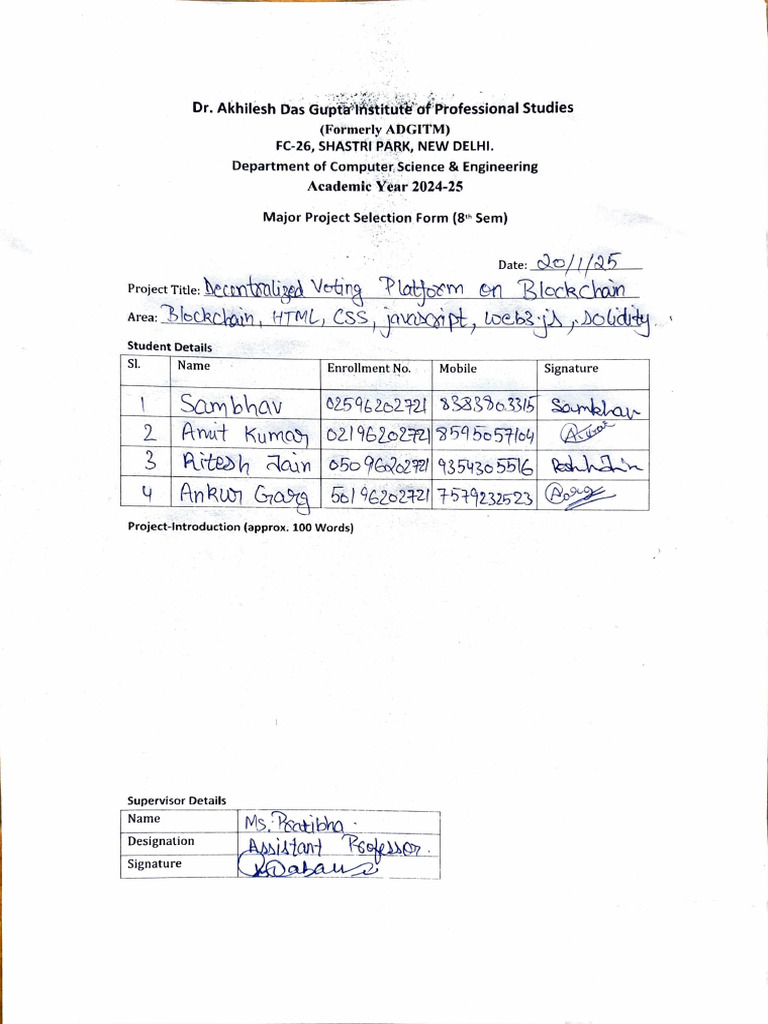 Dr. Akhilesh Das Gupta Institute of Professional Studies
(Formerly ADGITM)
FC-26, SHASTRI PARK, NEW DELHI.
Department of Computer Science & Engineering
Academic Year 2024-25
Major Project Selection Form (8th Sem)
Date: 20/1/25
Project Title: Decentralized Voting Platform on Blockchain
Area: Blockchain, HTML, CSS, javascript, web3.js, solidity.
Student Details
Sl. Name Enrollment No. Mobile Signature
1 Sambhav 02596202721 8383803315 Sambhav
2 Amit Kumar 02196202721 8595057104
3 Ritesh Jain 05096202721 9354305516
4 Ankur Garg 50196202721 7579232523
Project-Introduction (approx. 100 Words)
Supervisor Details
Name Ms. Pratibha.
Designation Assistant Professor.
Signature